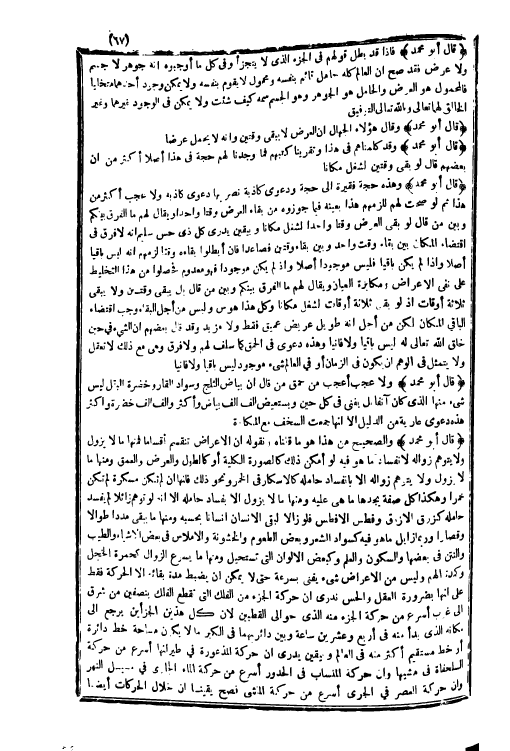 (٦٧)
﴿قال أبو محمد﴾ فاذا قد بطل قولهم فى الجزء الذى لا يتجزأ وفى كل ما أوجبوه انه جوهر لا جسم
ولا عرض فقد صح ان العالم كله حامل قائم بنفسه ومحمول لا يقوم بنفسه ولا يمكن وجود أحدهما متخليا
فالمحمول هو العرض والحامل هو الجوهر وهو الجسم سمه كيف شئت ولا يمكن فى الوجود غيرهما وغير
الخالق لهما تعالى وبالله تعالى التوفيق
﴿قال أبو محمد﴾ وقال هؤلاء الجهال ان العرض لا يبقى وقتين وانه لا يحمل عرضا
﴿قال أبو محمد﴾ وقد كلمناهم فى هذا وتقرينا كتبهم فما وجدنا لهم حجة فى هذا أصلا أكثر من ان
بعضهم قال لو بقى وقتين لشغل مكانا
﴿قال أبو محمد﴾ وهذه حجة فقيرة الى حجة ودعوى كاذبة نصر بها دعوى كاذبة ولا عجب أكثر من
هذا ثم لو صحت لهم للزمهم هذا بعينه فيما جوزوه من بقاء العرض وقتا واحدا ويقال لهم ما الفرق بينكم
وبين من قال لو بقى العرض وقتا واحدا لشغل مكانا وبيقين يدرى كل ذى حس سليم انه لا فرق فى
اقتضاء المكان بين بقاء وقت واحد وبين بقاء وقتين فصاعدا فان أبطلوا بقاءه وقتا لزمهم انه ليس باقيا
أصلا واذا لم يكن باقيا فليس موجودا أصلا واذ لم يكن موجودا فهو معدوم فحصلوا من هذا التخليط
على نفى الاعراض ومكابرة العيان ويقال لهم ما الفرق بينكم وبين من قال بل يبقى وقتين ولا يبقى
ثلاثة أوقات اذ لو بقى ثلاثة أوقات لشغل مكانا وكل هذا هوس وليس من أجل البقاء وجب اقتضاء
الباقى المكان لكن من أجل انه طويل عريض عميق فقط ولا مزيد وقد قال بعضهم ان الشىء فى حين
خلق الله تعالى له ليس باقيا ولا فانيا وهذه دعوى فى الحمق كما سلف لهم ولا فرق وهى مع ذلك لا تعقل
ولا يتمثل فى الوهم ان يكون فى الزمان أو فى العالم شىء موجود ليس باقيا ولا فانيا
﴿قال أبو محمد﴾ ولا عجب أعجب من حمق من قال ان بياض الثلج وسواد القار وخضرة البقل ليس
شىء منها الذى كان آنفا بل يفنى فى كل حين ويستعيض ألف ألف بياض وأكثر وألف ألف خضرة واكثر
هذه دعوى عارية من الدليل الا انها جمعت السخف مع المكابرة
﴿قال أبو محمد﴾ والصحيح من هذا هو ما قلناه ونقوله ان الاعراض تنقسم أقساما فمنها ما لا يزول
ولا يتوهم زواله الا بفساد ما هو فيه لو أمكن ذلك كالصورة الكلية أو كالطول والعرض والعمق ومنها ما
لا يزول ولا يتوهم زواله الا بانفساد حامله كالاسكار فى الخمر ونحو ذلك فانها ان لم تكن مسكرة لم تكن
خمرا وهكذا كل صفة يجدها ما هى عليه ومنها ما لا يزول الا بفساد حامله الا انه لو توهم زائلا لم يفسد
حامله كزرق الازرق وفطس الافطس فلو زالا لبقى الانسان انسانا بحسبه ومنها ما يبقى مددا طوالا
وقصارا وربما زايل ما هو فيه كسواد الشعر وبعض الطعوم والخشونة والاملاس فى بعض الاشياء والطيب
والنتن فى بعضها والسكون والعلم وكبعض الالوان التى تستحيل ومنها ما يسرع الزوال كحمرة الخجل
وكمد الهم وليس من الاعراض شىء يفنى بسرعة حتى لا يمكن ان يضبط مدة بقائه الا الحركة فقط
على انها بضرورة العقل والحس ندرى ان حركة الجزء من الفلك التى تقطع الفلك بنصفين من شرق
الى غرب أسرع من حركة الجزء منه الذى حوالى القطبين لان كل هذين الجزأين يرجع الى
مكانه الذى بدأ منه فى أربع وعشرين ساعة وبين دائرتيهما فى الكبر ما لا يكون مساحة خط دائرة
أو خط مستقيم أكثر منه فى العالم وبيقين يدرى ان حركة المذعورة فى طيرانها أسرع من حركة
السلحفاة فى مشيها وان حركة المنساب فى الحدور أسرع من حركة الماء الجارى فى مسيل النهر
وان حركة العصر فى الجرى أسرع من حركة المشى فصح يقينا ان خلال الحركات أيضا